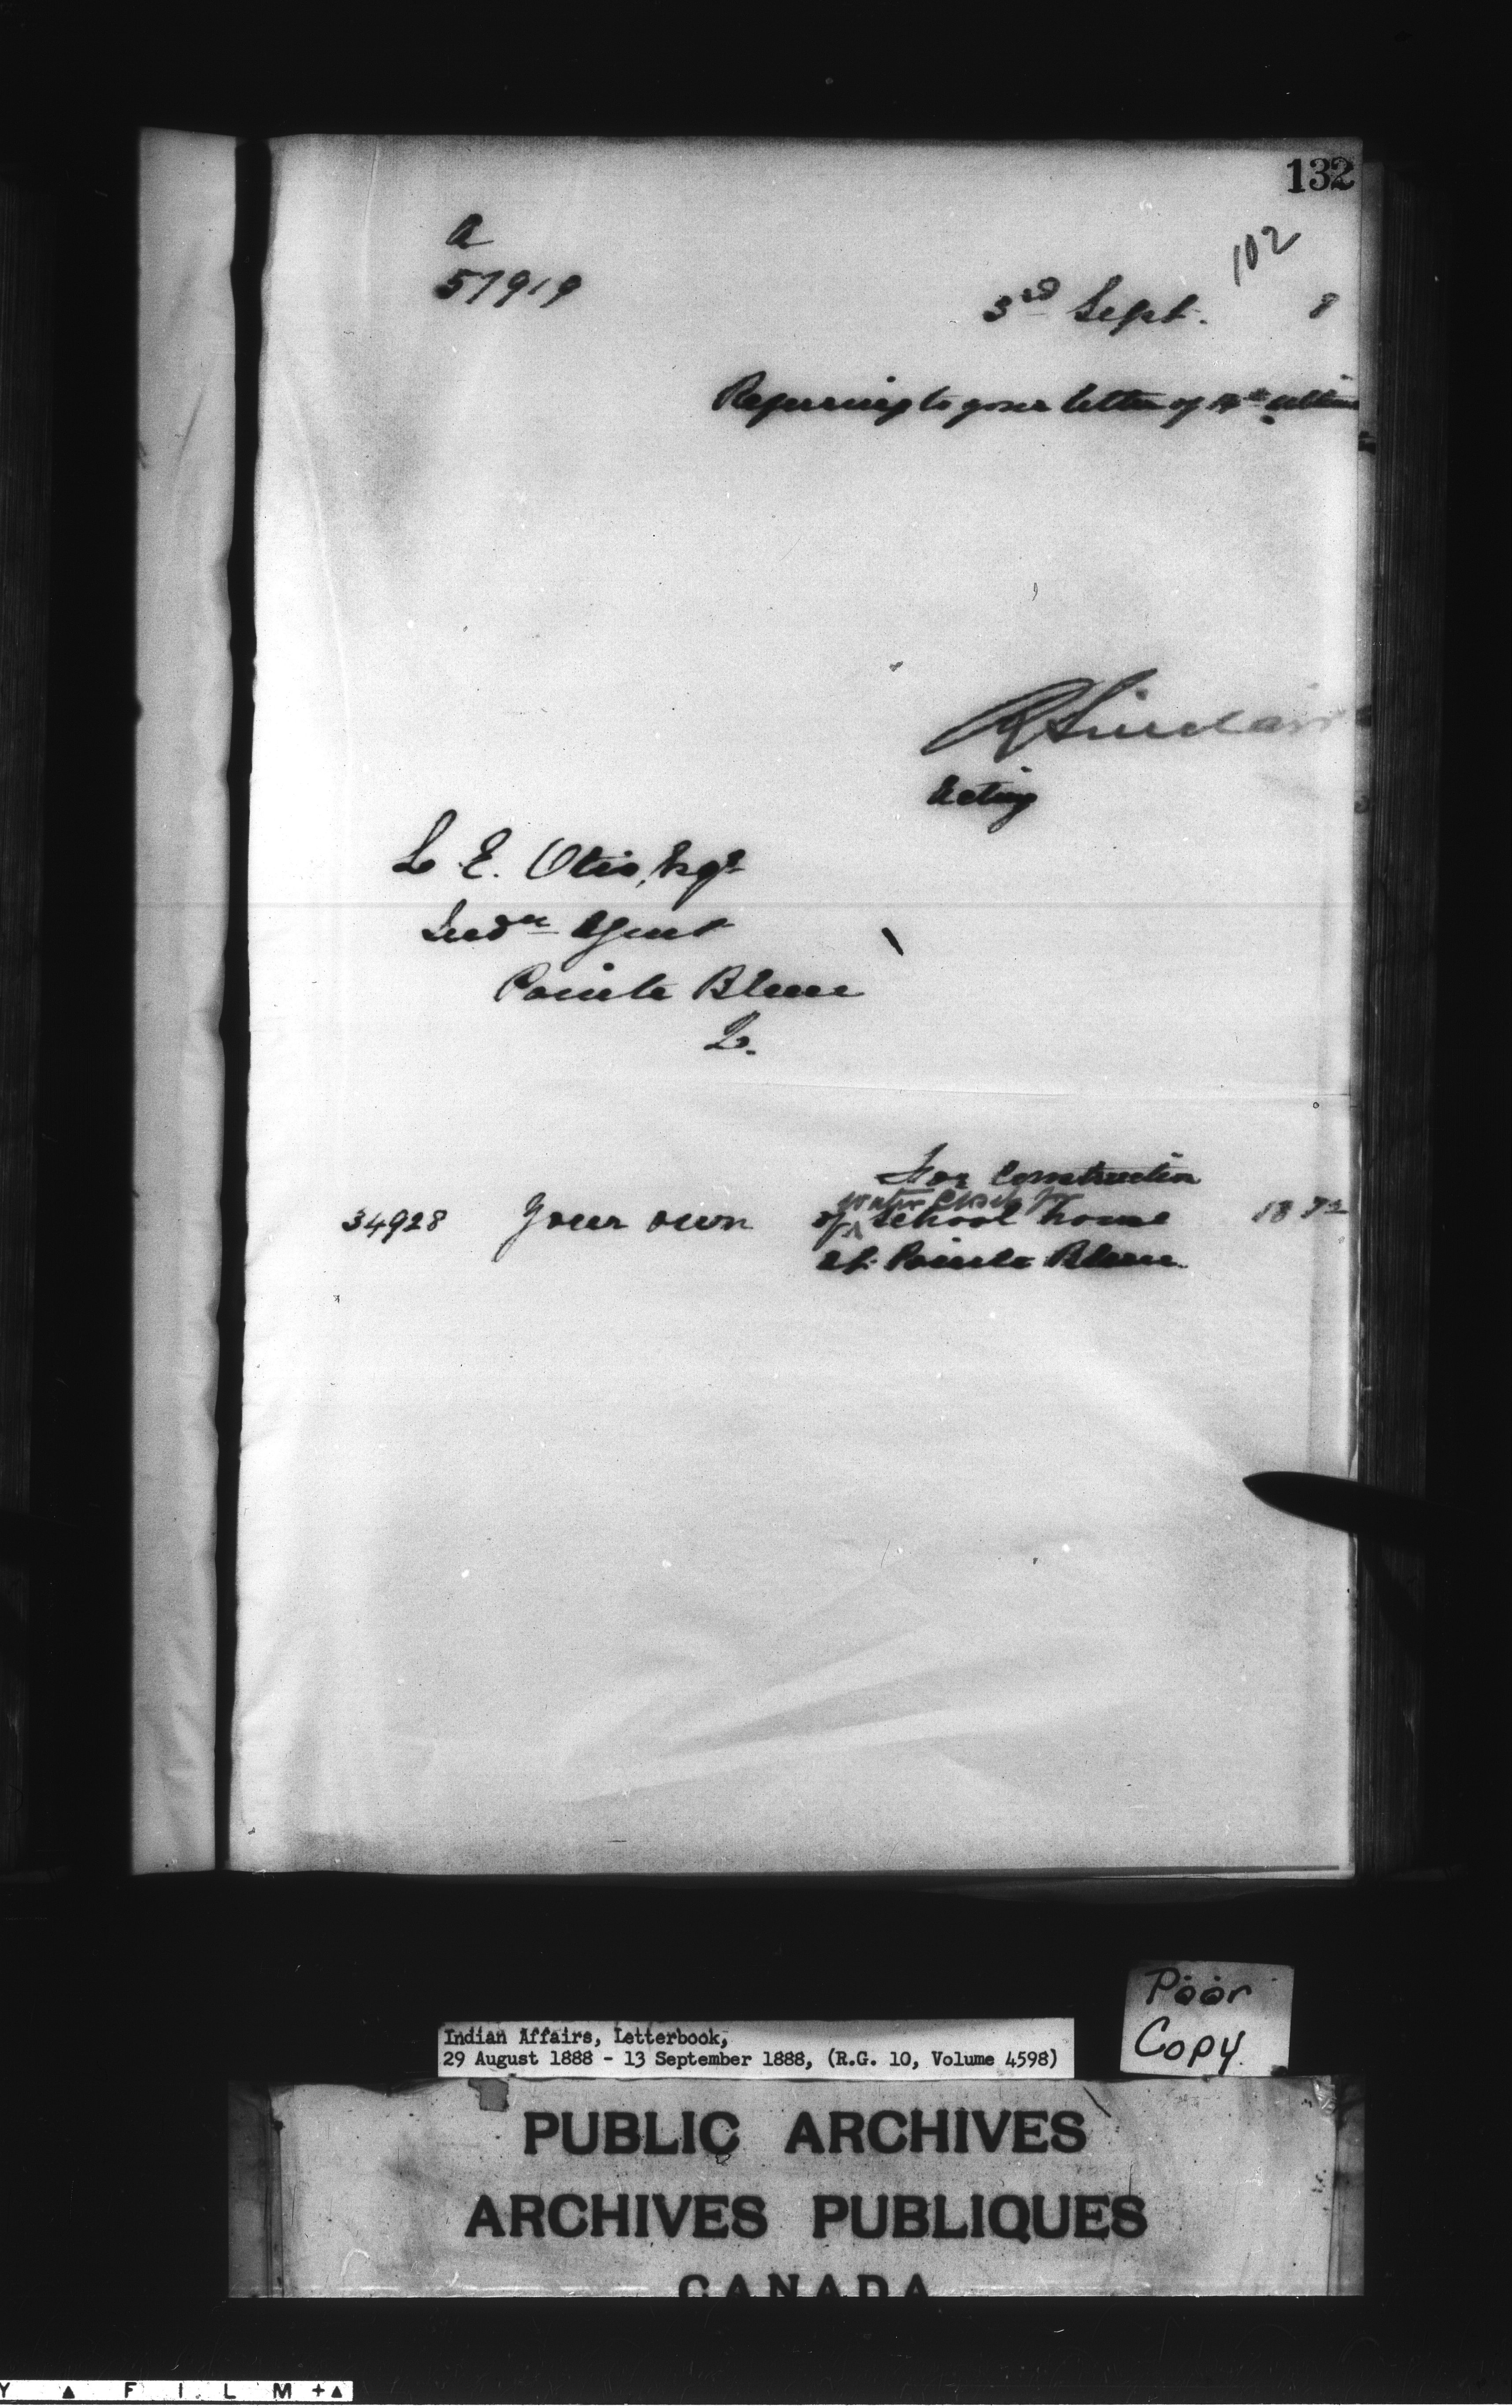 132
102
A
57919
3rd Sept. 8
Referring to your letter of ultimo
R Sinclair
Acting
L. E. Otis, Esqr
Indn Agent
Pointe Bleue
Q.
For Construction
water closet for
34928 Your own of ^ school house 18
at Pointe Bleue
Poor
Copy.
Indian Affairs, Letterbook,
29 August 1888 - 13 September 1888, (R.G. 10, Volume 4598)
PUBLIC ARCHIVES
ARCHIVES PUBLIQUES
CANADA
Y ▲ F I L M +▲